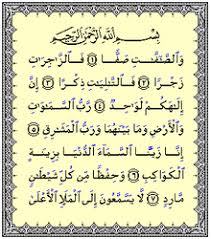 بِسْمِ ٱللَّهِ ٱلرَّحْمَٰنِ ٱلرَّحِيمِ
وَٱلصَّٰٓفَّٰتِ صَفًّا ١ فَٱلزَّٰجِرَٰتِ
زَجْرًا ٢ فَٱلتَّٰلِيَٰتِ ذِكْرًا ٣ إِنَّ
إِلَٰهَكُمْ لَوَٰحِدٌ ٤ رَّبُّ ٱلسَّمَٰوَٰتِ
وَٱلْأَرْضِ وَمَا بَيْنَهُمَا وَرَبُّ ٱلْمَشَٰرِقِ ٥
إِنَّا زَيَّنَّا ٱلسَّمَآءَ ٱلدُّنْيَا بِزِينَةٍ
ٱلْكَوَاكِبِ ٦ وَحِفْظًا مِّن كُلِّ شَيْطَٰنٍ
مَّارِدٍ ٧ لَّا يَسَّمَّعُونَ إِلَى ٱلْمَلَإِ ٱلْأَعْلَىٰ